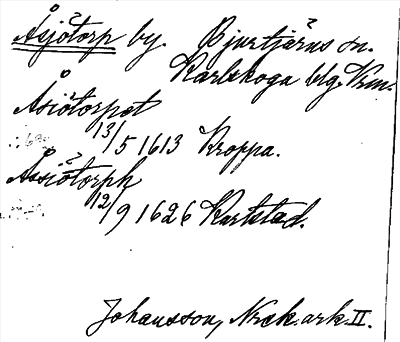 Åsjötorp by. Bjurtjärns sn.
Karlskoga blg. Vrm.
Åsiötorpet
13/5 1613 Kroppa.
Åssiötorph
12/9 1626 Karlstad.
Johansson, Noraek. ark. II.